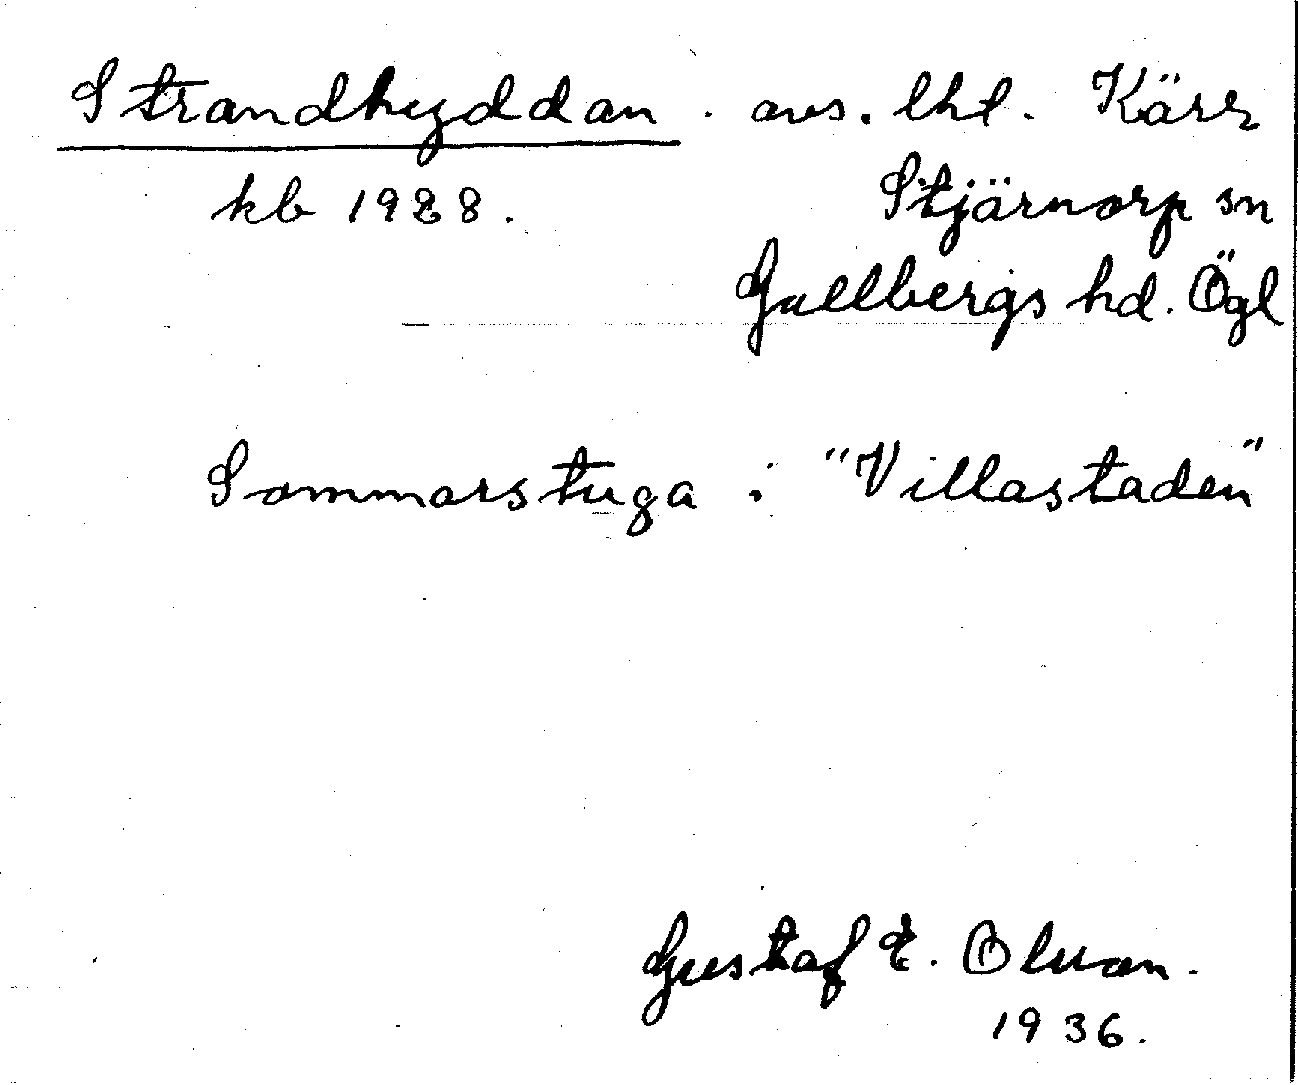 Strandhyddan . avs. lht. Kärr
kb 1928. Stjärnorp sn
Gullbergs hd. Ögl
Sommarstuga i "Villastaden"
Gustaf E.
1936.